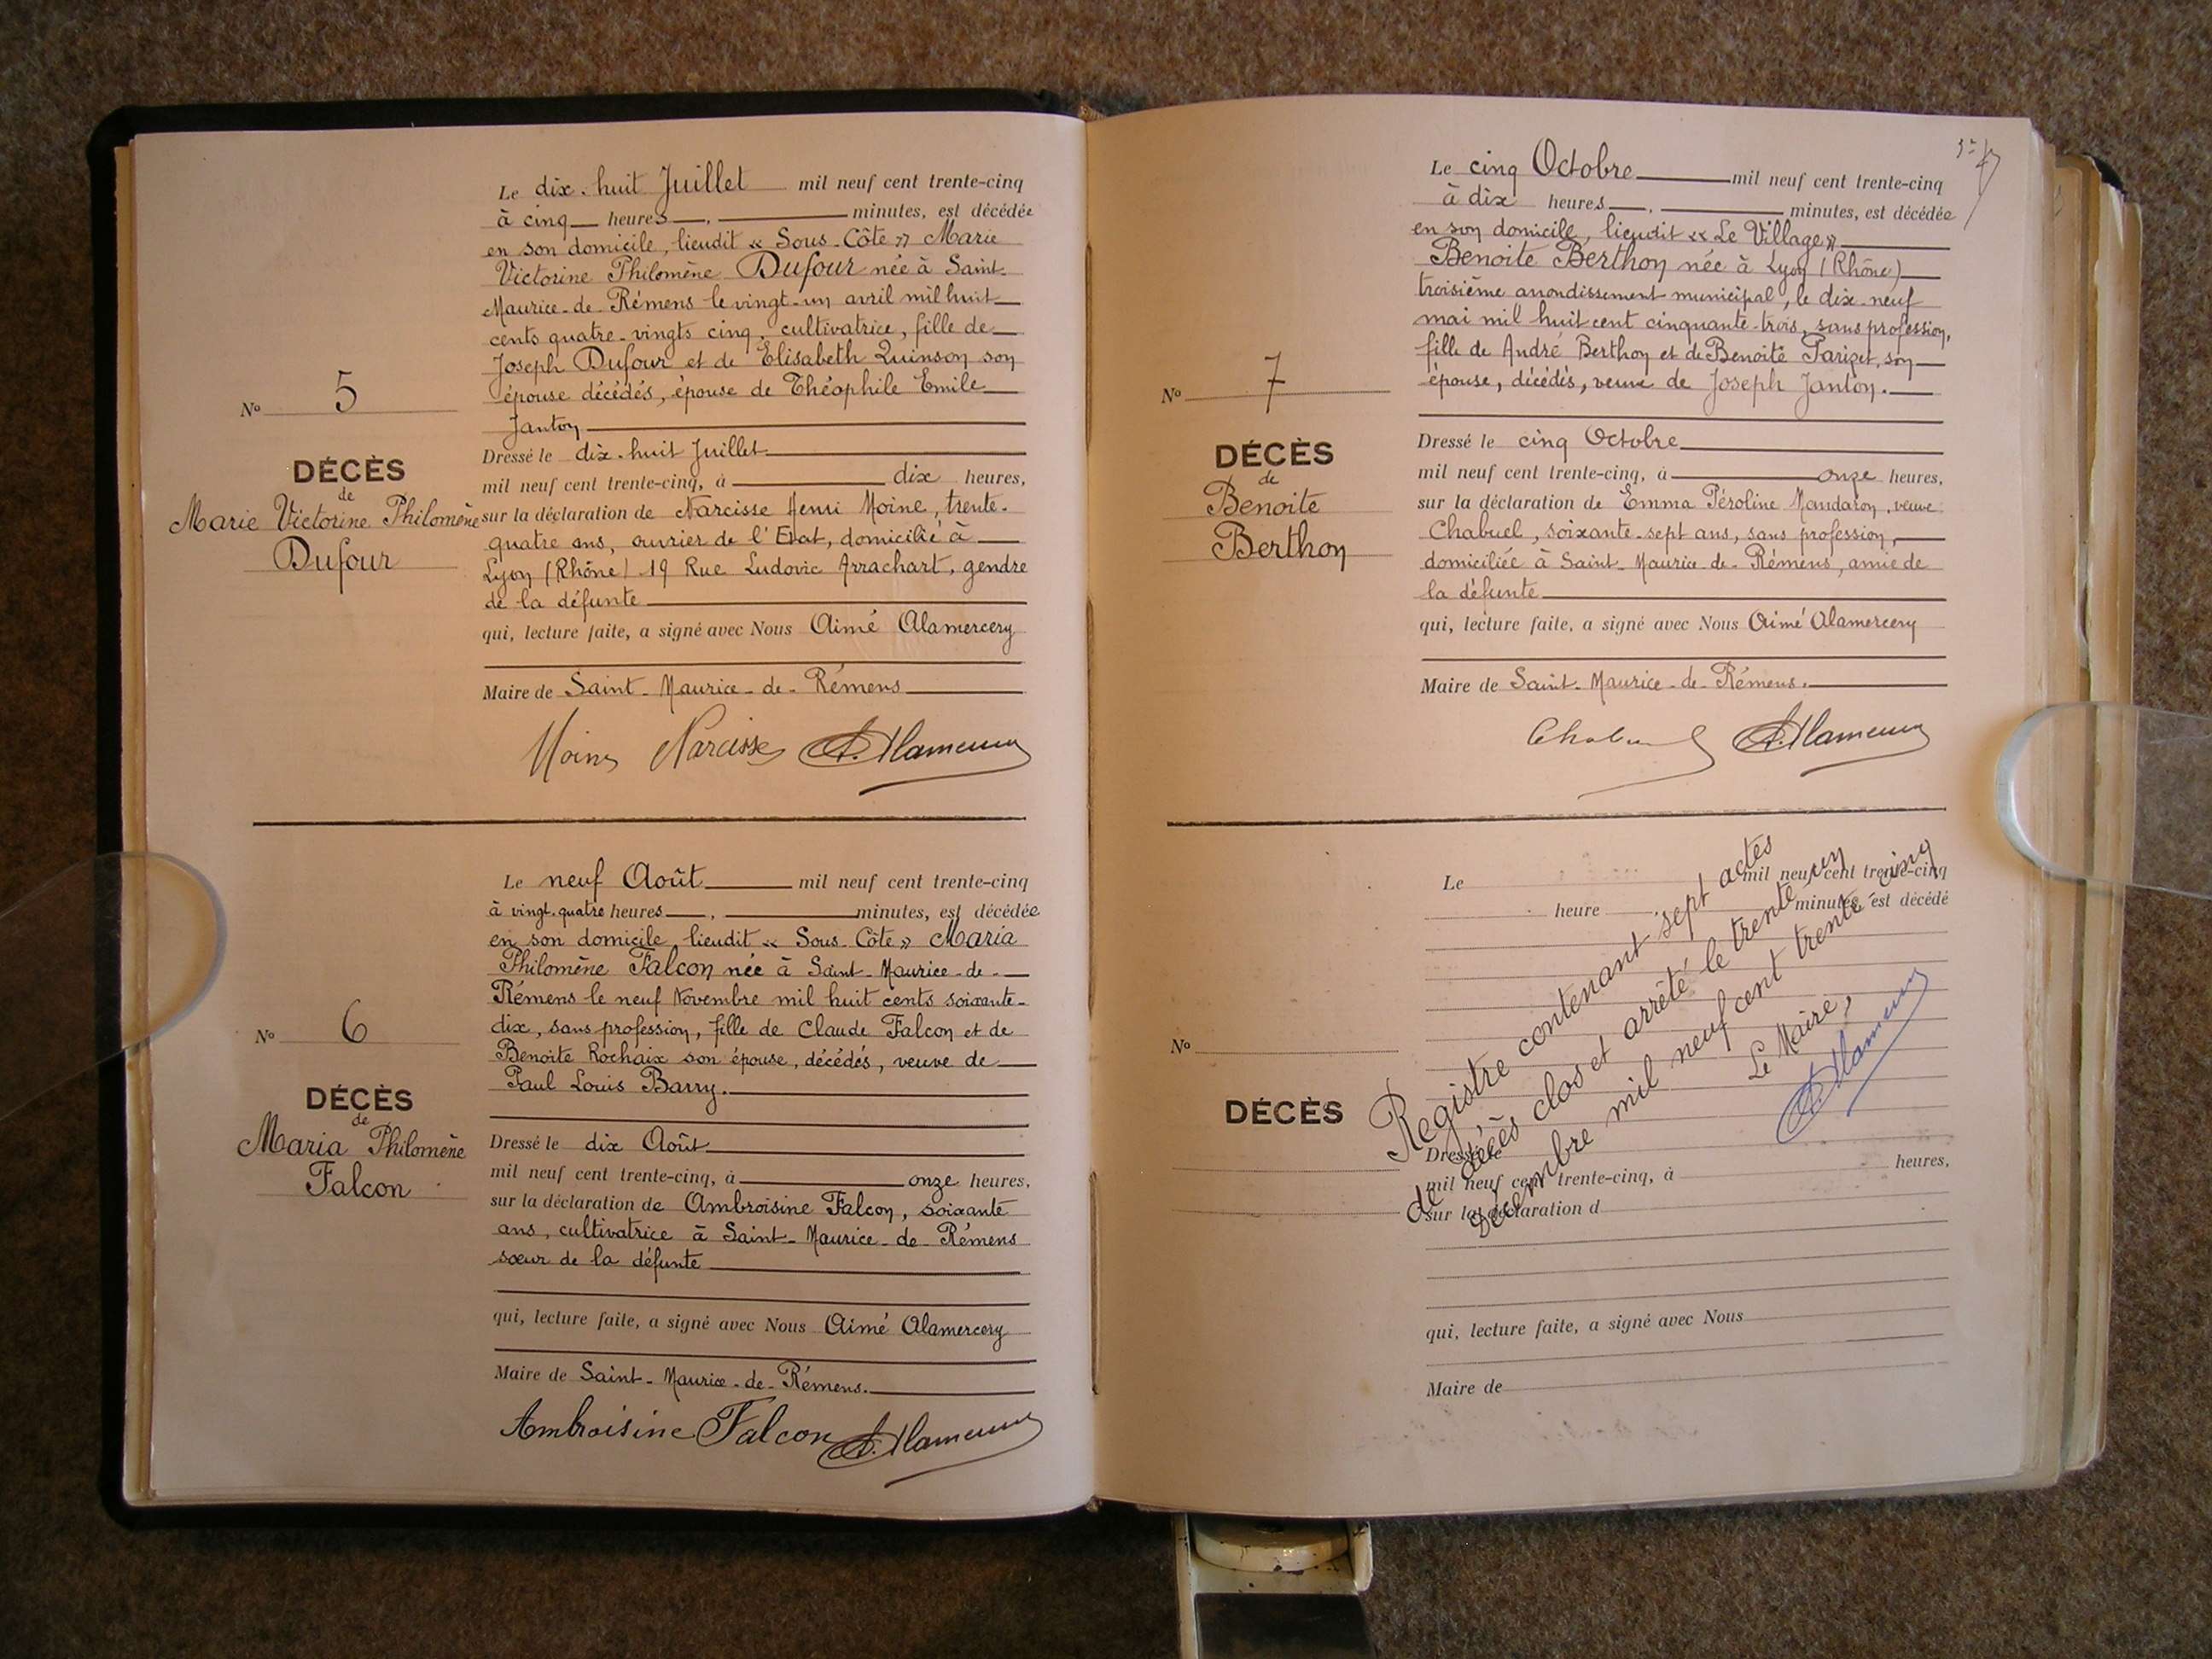 Le dix-huit Juillet mil neuf cent trente-cinq
à cinq heures, minutes, est décédée
en son domicile, lieudit « Sous-Côte » Marie
Victorine Philomène Dufour née à Saint-
Maurice-de-Rémens le vingt-un avril mil huit
cents quatre-vingts cinq, cultivatrice, fille de
Joseph Dufour et de Elisabeth Quinson son
épouse décédés, épouse de Théophile Emile
Janton
Nº 5
DÉCÈS
de
Marie Victorine Philomène
Dufour
Dressé le dix-huit Juillet
mil neuf cent trente-cinq, à dix heures,
sur la déclaration de Narcisse Henri Moine, trente-
quatre ans, ouvrier de l'Etat, domicilié à
Lyon (Rhône) 19 Rue Ludovic Arrachart, gendre
de la défunte
qui, lecture faite, a signé avec Nous Aimé Alamercery
Maire de Saint-Maurice-de-Rémens
Moine Narcisse A. Alamercery
Le neuf Août mil neuf cent trente-cinq
à vingt-quatre heures, minutes, est décédée
en son domicile, lieudit « Sous-Côte » Maria
Philomène Falcon née à Saint-Maurice-de-
Rémens le neuf Novembre mil huit cents soixante-
dix, sans profession, fille de Claude Falcon et de
Benoite Rochaix son épouse, décédés, veuve de
Paul Louis Barry.
Nº 6
DÉCÈS
de
Maria Philomène
Falcon
Dressé le dix Août
mil neuf cent trente-cinq, à onze heures,
sur la déclaration de Ambroisine Falcon, soixante
ans, cultivatrice à Saint-Maurice-de-Rémens
sœur de la défunte
qui, lecture faite, a signé avec Nous Aimé Alamercery
Maire de Saint-Maurice-de-Rémens.
Ambroisine Falcon A. Alamercery
Le cinq Octobre mil neuf cent trente-cinq
à dix heures, minutes, est décédée
en son domicile, lieudit « Le Village »
Benoite Berthon née à Lyon (Rhône)
troisième arrondissement municipal, le dix-neuf
mai mil huit cent cinquante-trois, sans profession,
fille de André Berthon et de Benoite Parizet, son
épouse, décédés, veuve de Joseph Janton.
Nº 7
DÉCÈS
de
Benoite
Berthon
Dressé le cinq Octobre
mil neuf cent trente-cinq, à onze heures,
sur la déclaration de Emma Péroline Mandaron, veuve
Chabuel, soixante-sept ans, sans profession,
domiciliée à Saint-Maurice-de-Rémens, amie de
la défunte
qui, lecture faite, a signé avec Nous Aimé Alamercery
Maire de Saint-Maurice-de-Rémens.
Chabuel A. Alamercery
Le mil neuf cent trente-cinq
heure, minutes, est décédé
Nº
DÉCÈS
Registre contenant sept actes
de décès clos et arrêté le trente un
Décembre mil neuf cent trente cinq
Le Maire,
A. Alamercery
Dressé le
mil neuf cent trente-cinq, à heures,
sur la déclaration d
qui, lecture faite, a signé avec Nous
Maire de